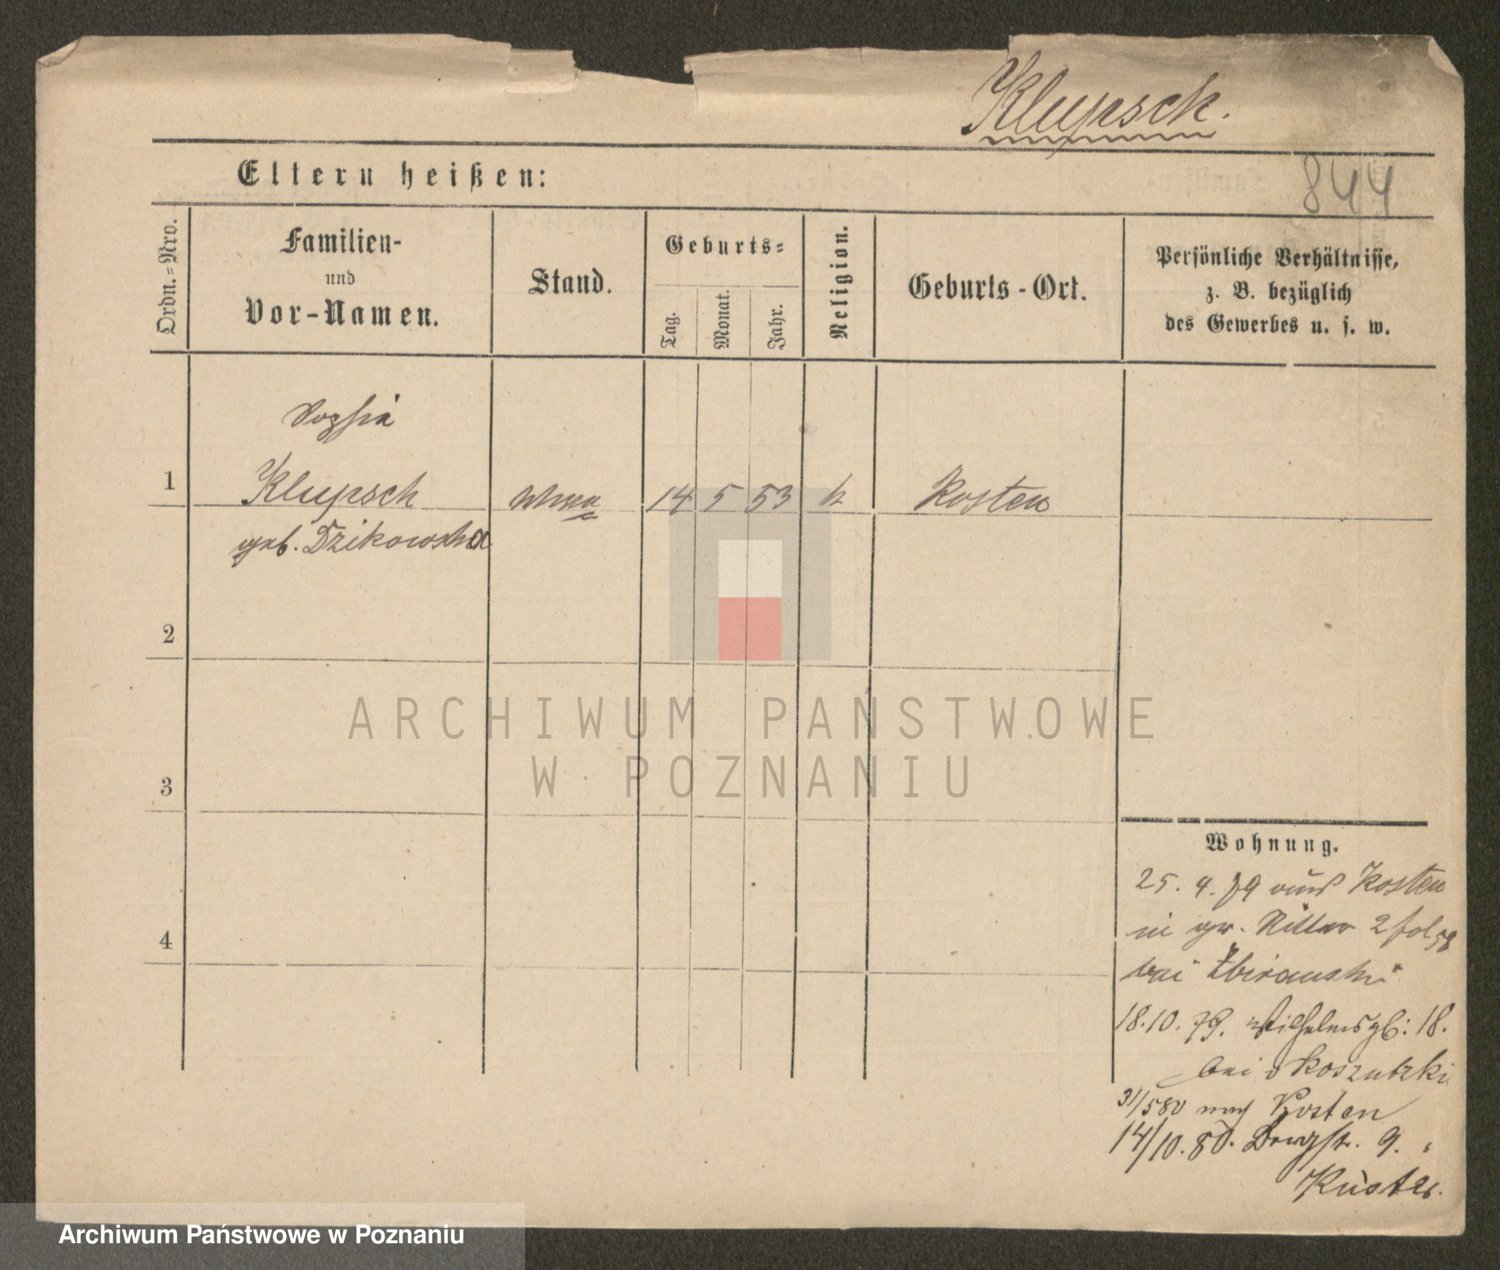 Klupsch.
844
Eltern heißen:
Ordn.=Nro.
Familien-
und
Vor-Namen.
Stand.
Geburts=
Tag.
Monat.
Jahr.
Religion.
Geburts-Ort.
Persönliche Verhältnisse,
z. B. bezüglich
des Gewerbes u. s. w.
Sophia
1 Klupsch 14 5 53 k Kosten
geb. Dzikowska
2
3
4
Wohnung.
25. 4. 79 aus Kosten
in gr. Ritter 2 fol 58
bei
18.10.79. Wilhelmspl: 18.
bei Koszutzki
31/5 80 nach Kosten
14/10. 80. Bergstr. 9.
ARCHIWUM PAŃSTWOWE
W POZNANIU
Archiwum Państwowe w Poznaniu